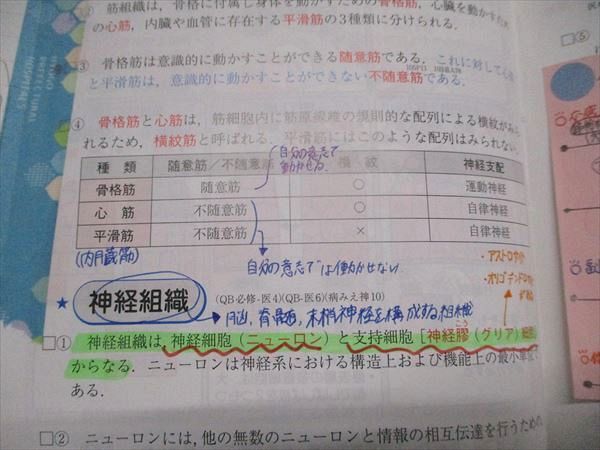 ② 筋組織は，骨格に付属し身体を動かすための骨格筋，心臓を動かすため
の心筋，内臓や血管に存在する平滑筋の3種類に分けられる．
③ 骨格筋は意識的に動かすことができる随意筋である．これに対して心
と平滑筋は，意識的に動かすことができない不随意筋である．
④ 骨格筋と心筋は，筋細胞内に筋原線維の規則的な配列による横紋がみ
れるため，横紋筋と呼ばれる．平滑筋にはこのような配列はみられない．
自分の意志で
動かせる．
種 類 随意筋／不随意筋 横 紋 神経支配
骨格筋 随意筋 運動神経
心 筋 不随意筋 ○ 自律神経
平滑筋 不随意筋 × 自律神経
(内臓筋)
自分の意志では働かせない
・アストロサイト
・オリゴデンドロサイト
★ 神経組織 (QB必修-医4)(QB-医6)(病みえ神10)
脳，脊髄，末梢神経を構成する組織
□① 神経組織は，神経細胞（ニューロン）と支持細胞［神経膠（グリア）細胞］
こう
からなる．ニューロンは神経系における構造上および機能上の最小単位で
ある．
□② ニューロンには，他の無数のニューロンと情報の相互伝達を行うための
□⑤